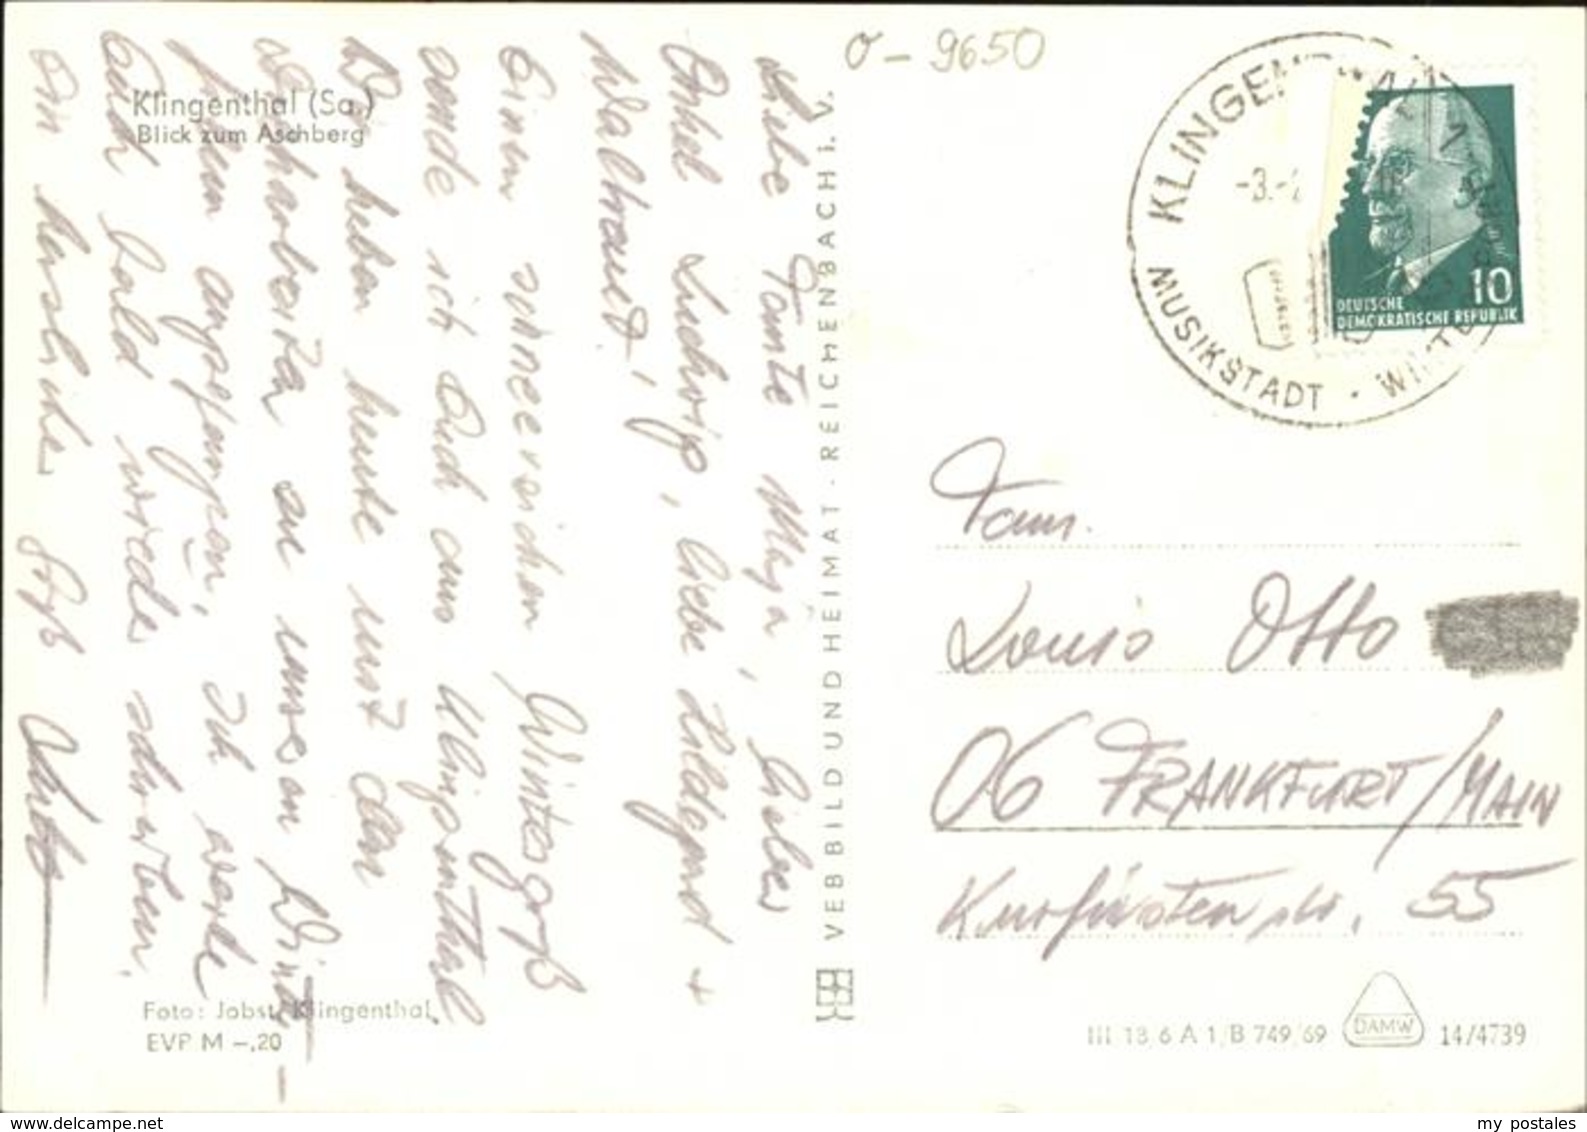 O-9650
Klingenthal (Sa.)
Blick zum Aschberg
Liebe Tante Mya, lieber
Onkel Ludwig, liebe Hildegard +
Waltraud!
Einen schneereichen Wintergruß
sende ich Euch aus Klingenthal
Wir haben heute mit den
an unseren Winter-
haben angefangen. Ich werde
Euch bald wieder schreiben.
Ein herzlicher Gruß
Foto: Jobst, Klingenthal
EVP M -,20
VEB BILD UND HEIMAT · REICHENBACH i. V.
KLINGENTHAL
-3.-
MUSIKSTADT ·
10
DEUTSCHE
DEMOKRATISCHE REPUBLIK
Fam.
Louis Otto
06 FRANKFURT/MAIN
Kurfürstenstr. 55
III 18/6 A 1/B 749/69
DAMW
14/4739
www.delcampe.net
my_postales